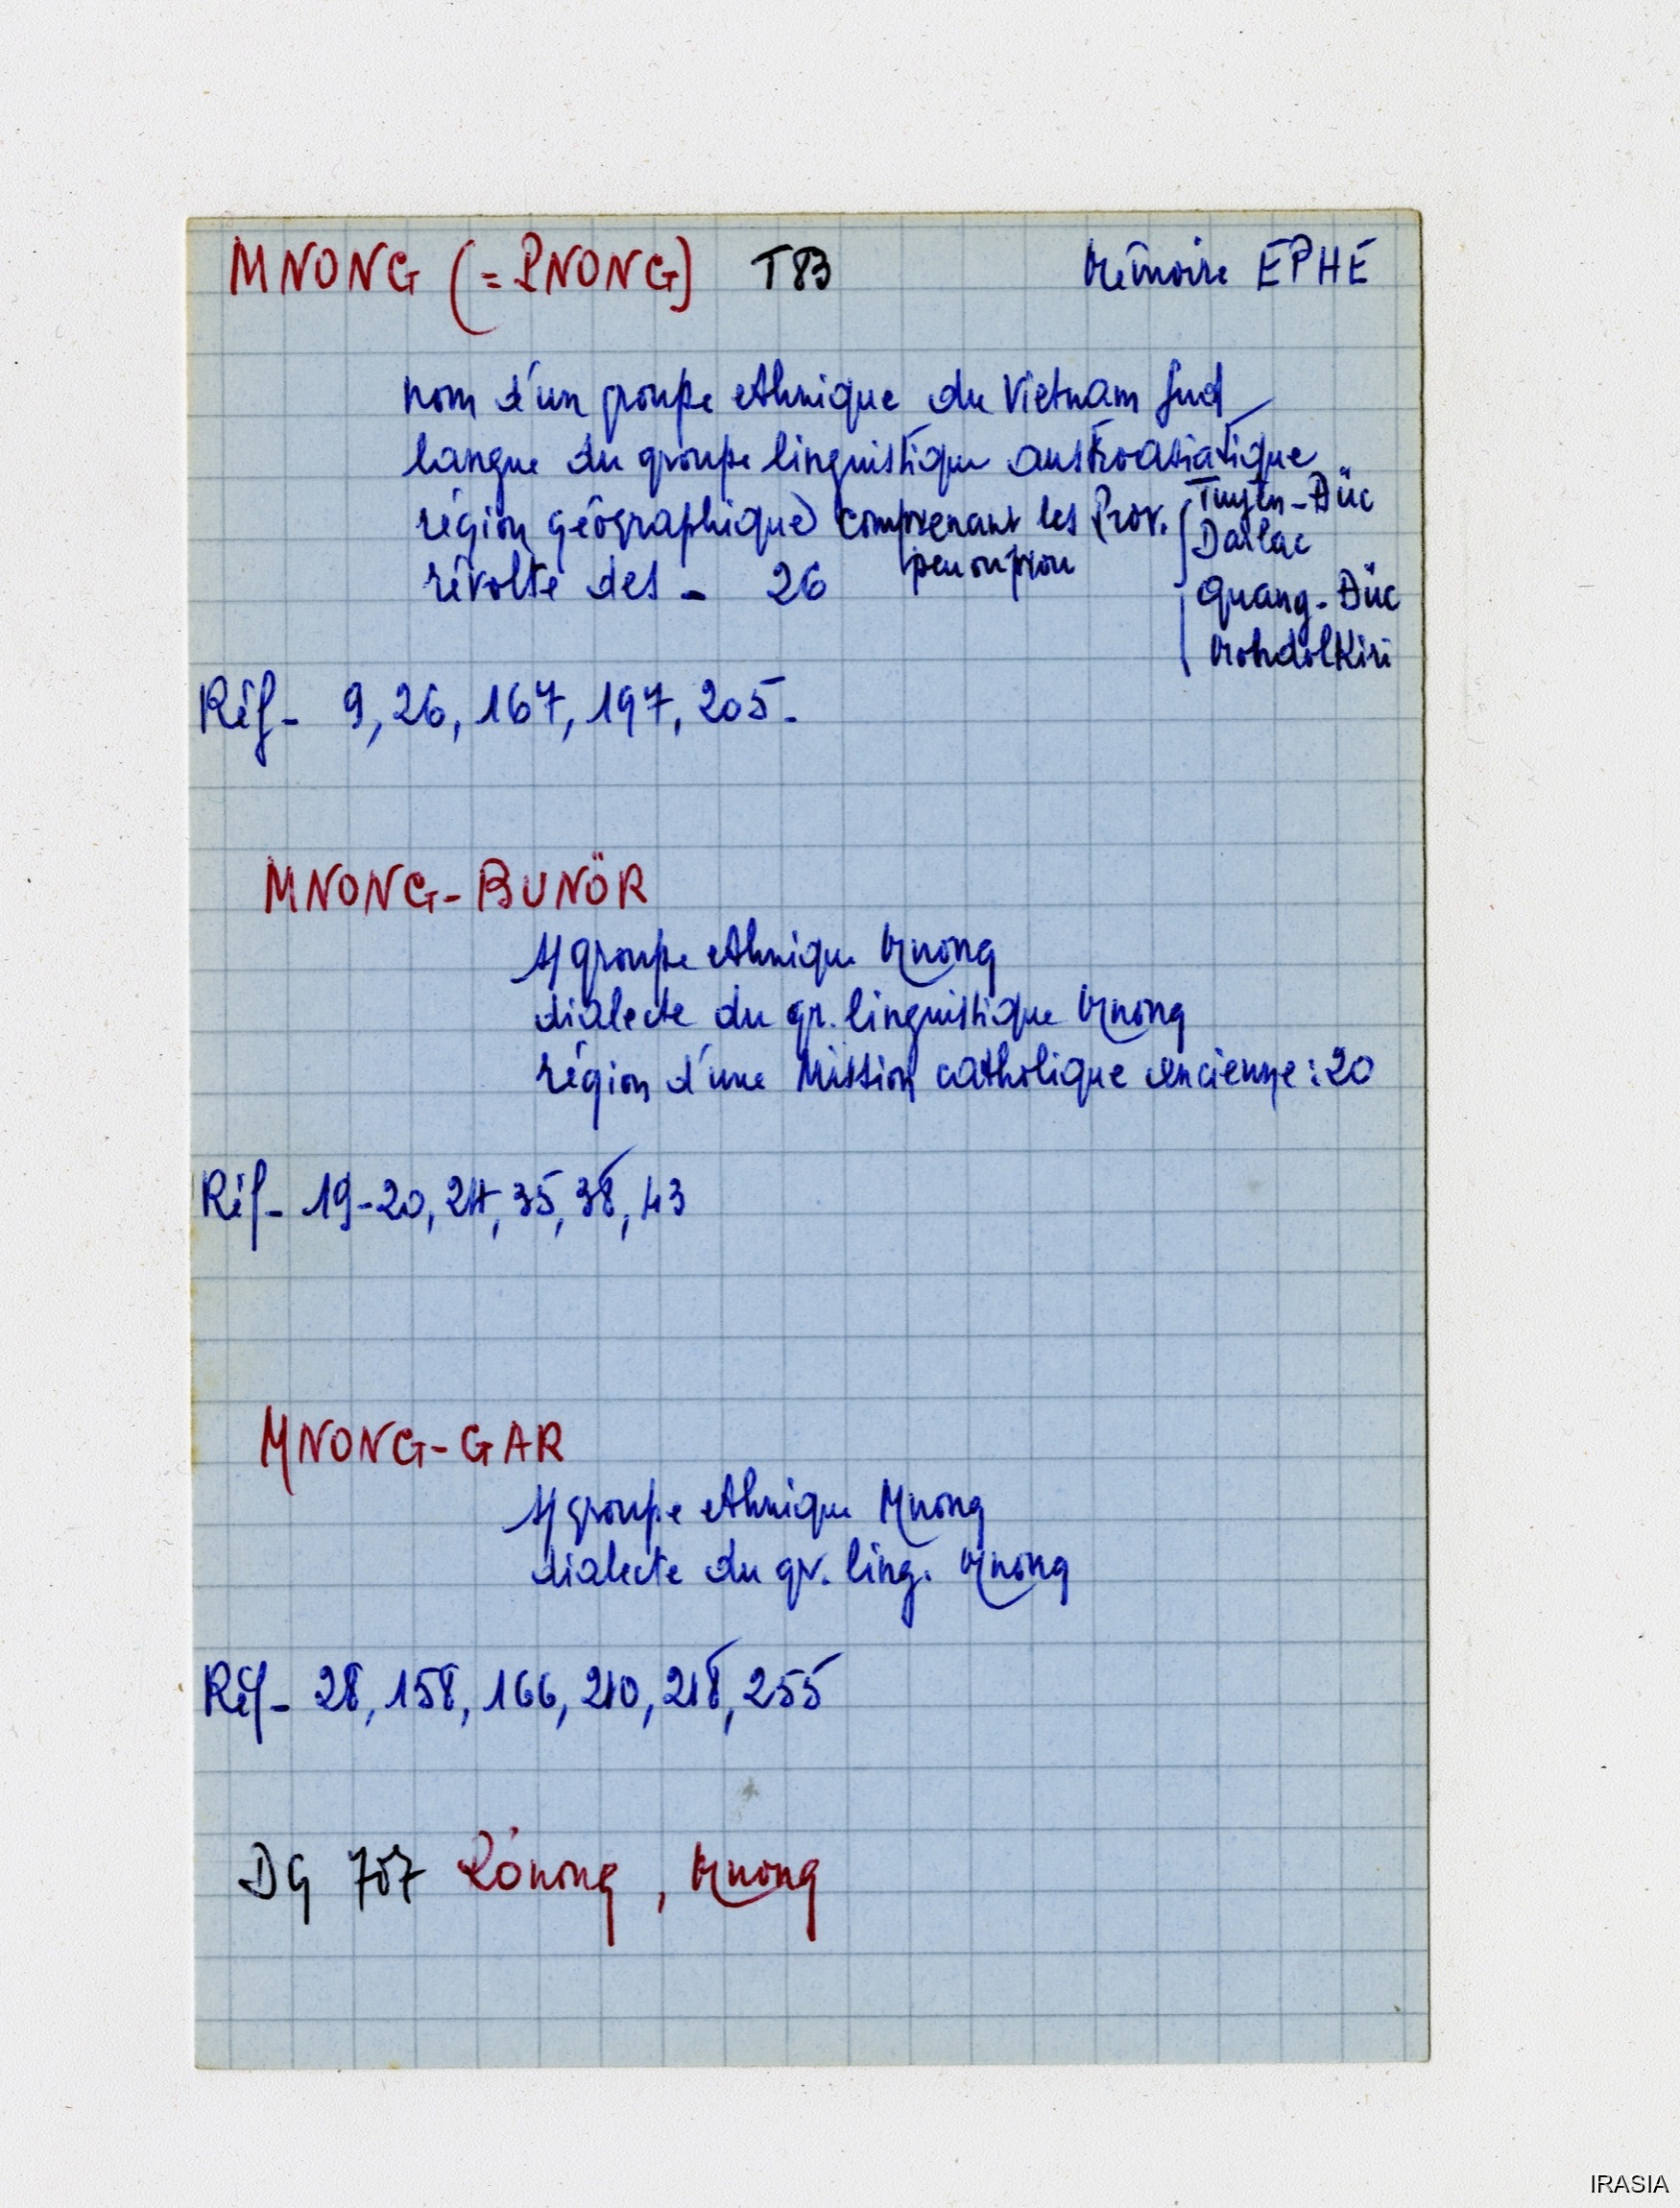 MNONG (= PNONG) T83 Mémoire EPHE
nom d'un groupe ethnique du Vietnam Sud
langue du groupe linguistique austroasiatique
région géographique comprenant les Prov. Tuyên-Đúc
peu ou prou Darlac
révolte des - 26 Quang-Đúc
Mondolkiri
Réf - 9, 26, 167, 197, 205 -
MNONG-BUNÖR
s/groupe ethnique Mnong
dialecte du gr. linguistique Mnong
région d'une Mission catholique ancienne : 20
Réf - 19-20, 24, 35, 38, 43
MNONG-GAR
s/groupe ethnique Mnong
dialecte du gr. ling. Mnong
Réf - 28, 158, 166, 210, 218, 255
DG 707 Mnong
IRASIA